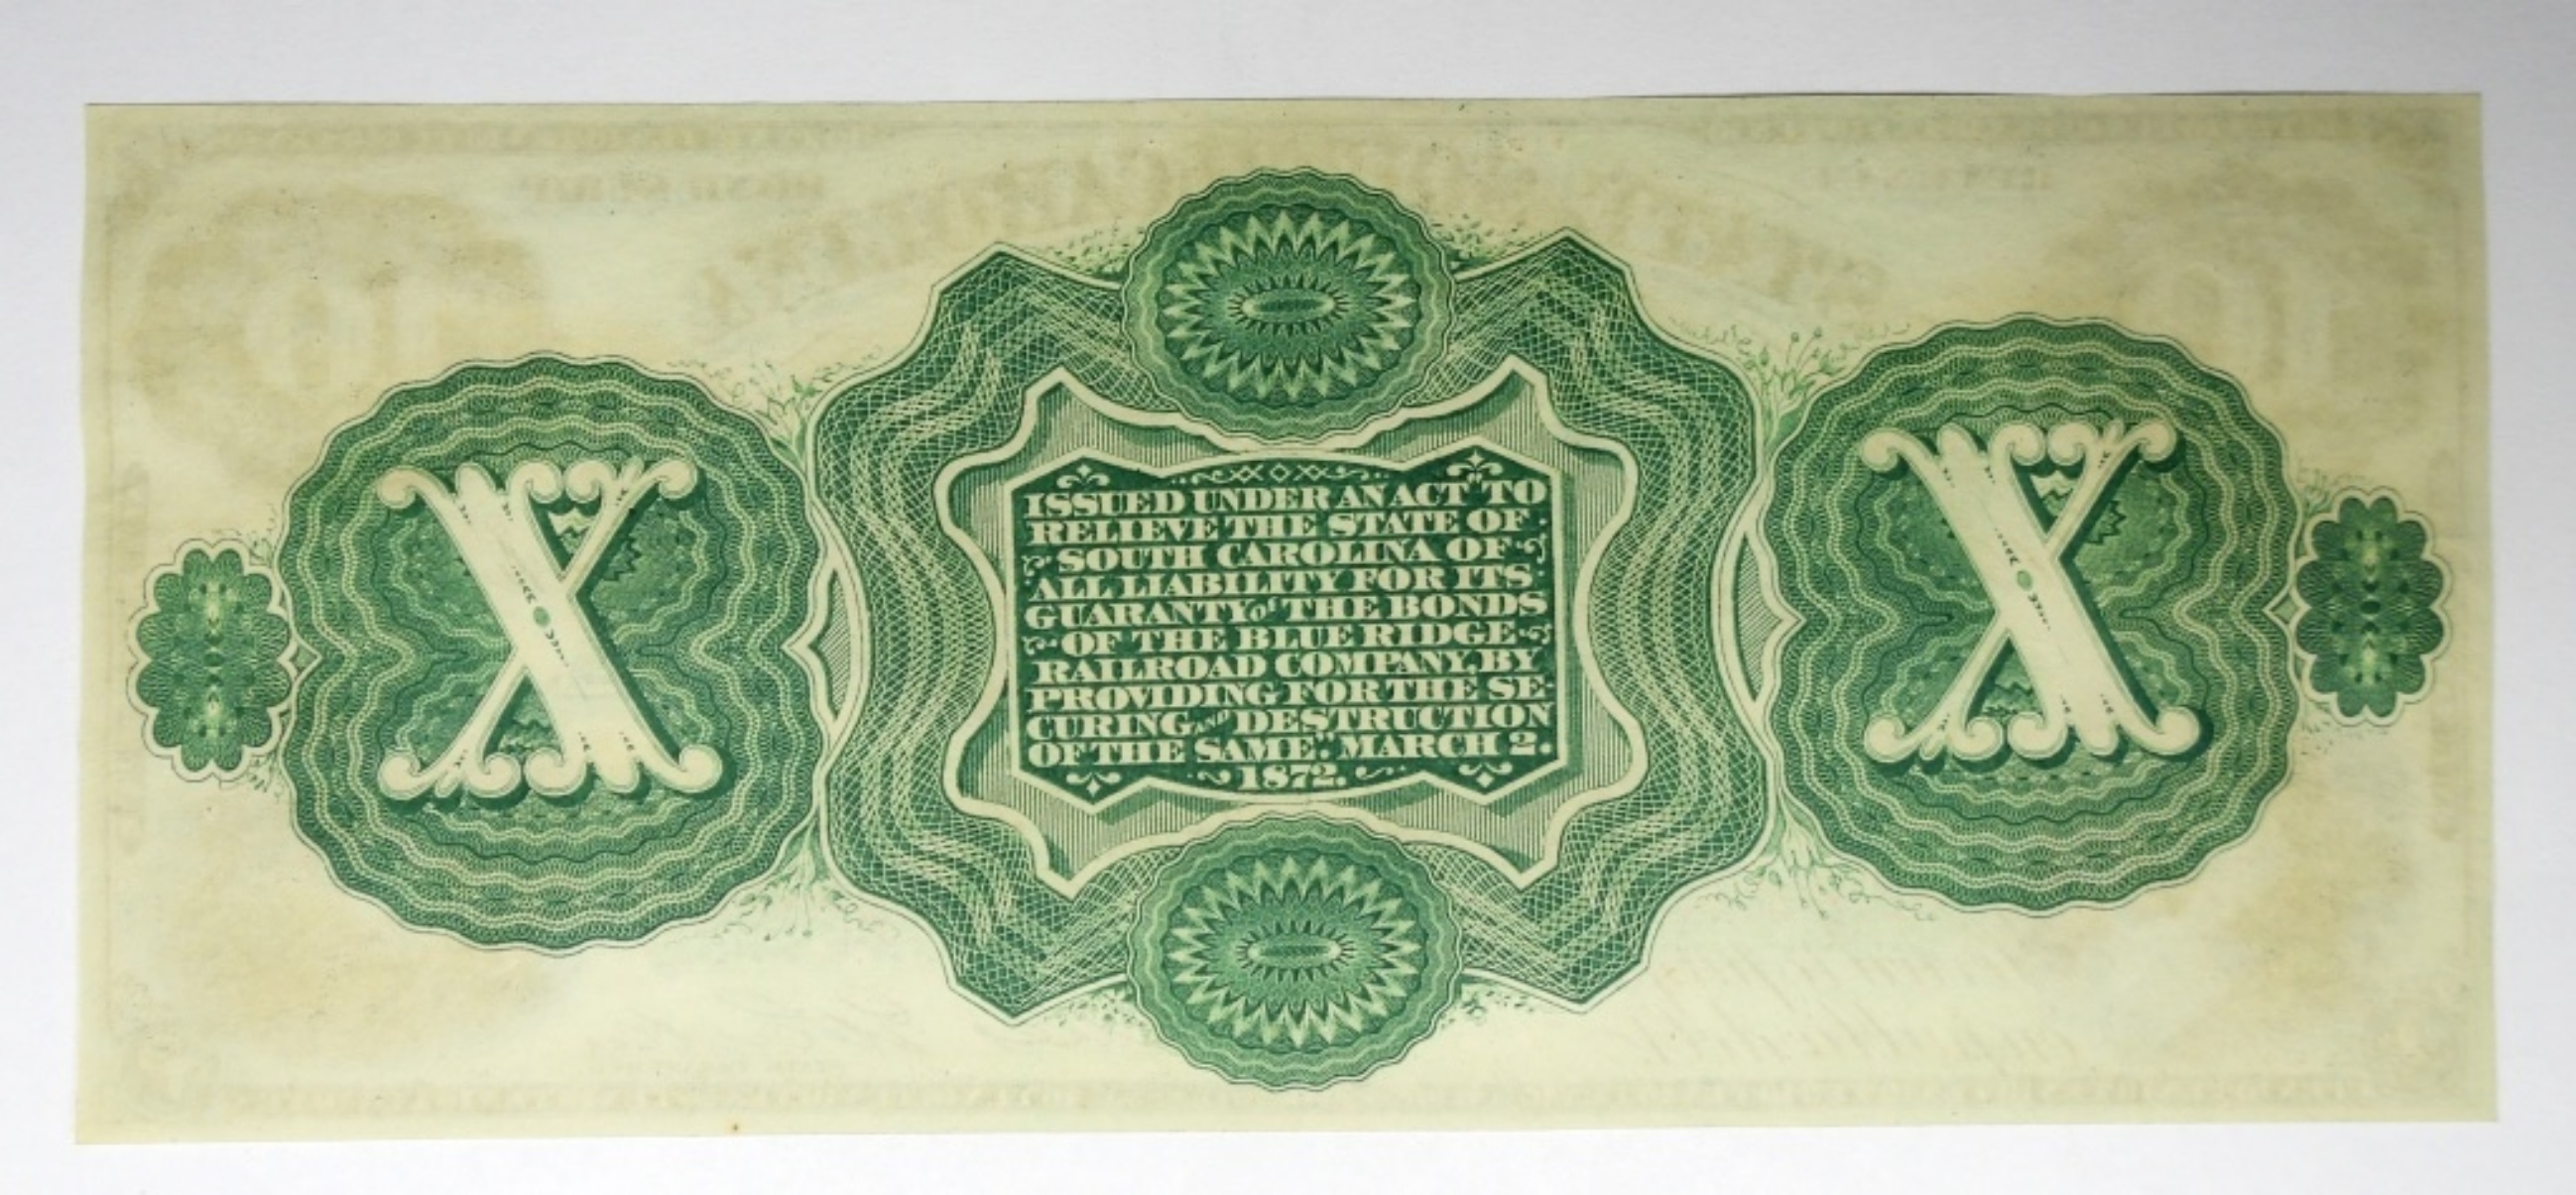 X
X
ISSUED UNDER AN ACT "TO
RELIEVE THE STATE OF
SOUTH CAROLINA OF
ALL LIABILITY FOR ITS
GUARANTY of THE BONDS
OF THE BLUE RIDGE
RAILROAD COMPANY, BY
PROVIDING FOR THE SE-
CURING AND DESTRUCTION
OF THE SAME". MARCH 2.
1872.